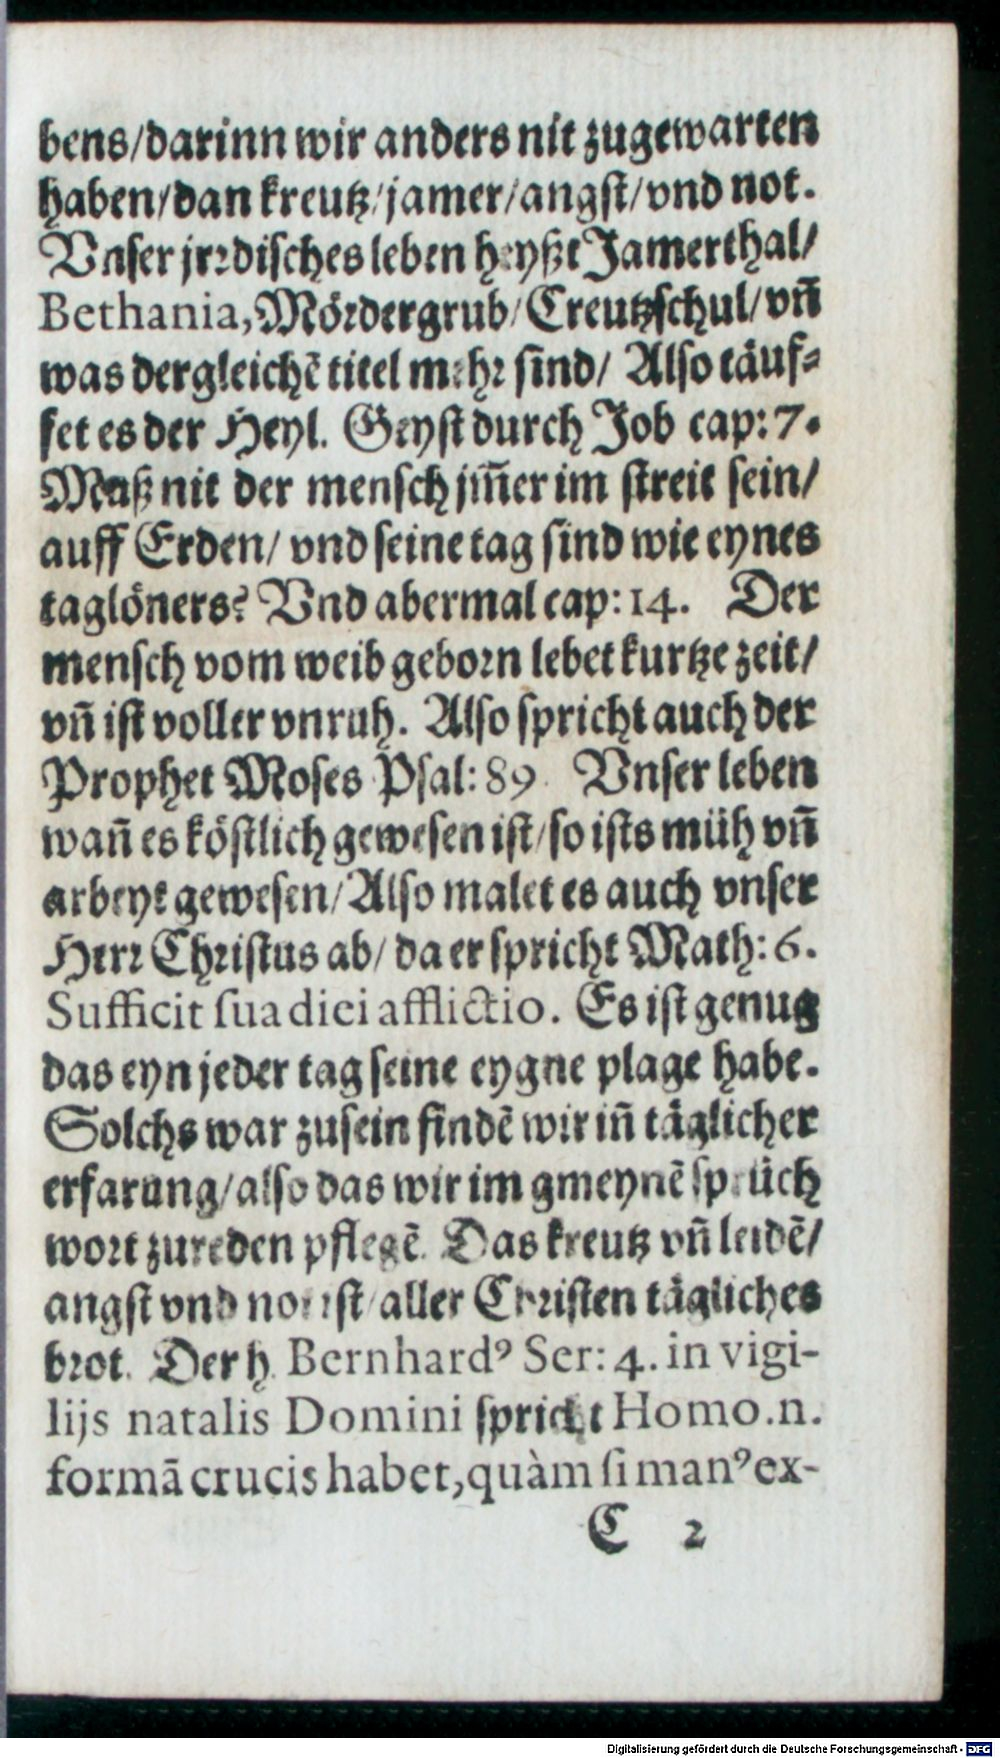 bens/darinn wir anders nit zugewarten
haben/dan kreutz/jamer/angſt/vnd not.
Vnſer jrꝛdiſches leben heyßt Jamerthal/
Bethania, Mördergrub/Creutzſchul/vñ
was dergleichẽ titel mehr ſind/ Alſo täuf⸗
fet es der Heyl. Geyſt durch Job cap: 7.
Muß nit der menſch jm̃er im ſtreit ſein/
auff Erden/ vnd ſeine tag ſind wie eynes
taglöners? Vnd abermal cap: 14. Der
menſch vom weib geborn lebet kurtze zeit/
vñ iſt voller vnruh. Alſo ſpricht auch der
Prophet Moſes Pſal: 89. Vnſer leben
wañ es köſtlich geweſen iſt/ſo iſts müh vñ
arbeyt geweſen/Alſo malet es auch vnſer
Herr Chriſtus ab/ da er ſpricht Math: 6.
Sufficit ſua diei afflictio. Es iſt genug
das eyn jeder tag ſeine eygne plage habe.
Solchs war zuſein findẽ wir iñ täglicher
erfarung/alſo das wir im gmeynẽ ſprüch
wort zureden pflegẽ. Das kreutz vñ leidẽ/
angſt vnd not iſt/aller Chriſten tägliches
brot. Der h. Bernhardꝰ Ser: 4. in vigi-
lijs natalis Domini ſpricht Homo.n.
formā crucis habet, quàm ſi manꝰ ex-
C 2
Digitalisierung gefördert durch die Deutsche Forschungsgemeinschaft - DFG